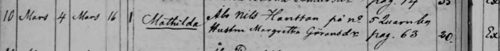 pag. 14
10 Mars 4 Mars 16 1 Mathilda Åb Nils Hansson på No 5 Quarnby
Hustru Margretha Göransdr pag. 63 20